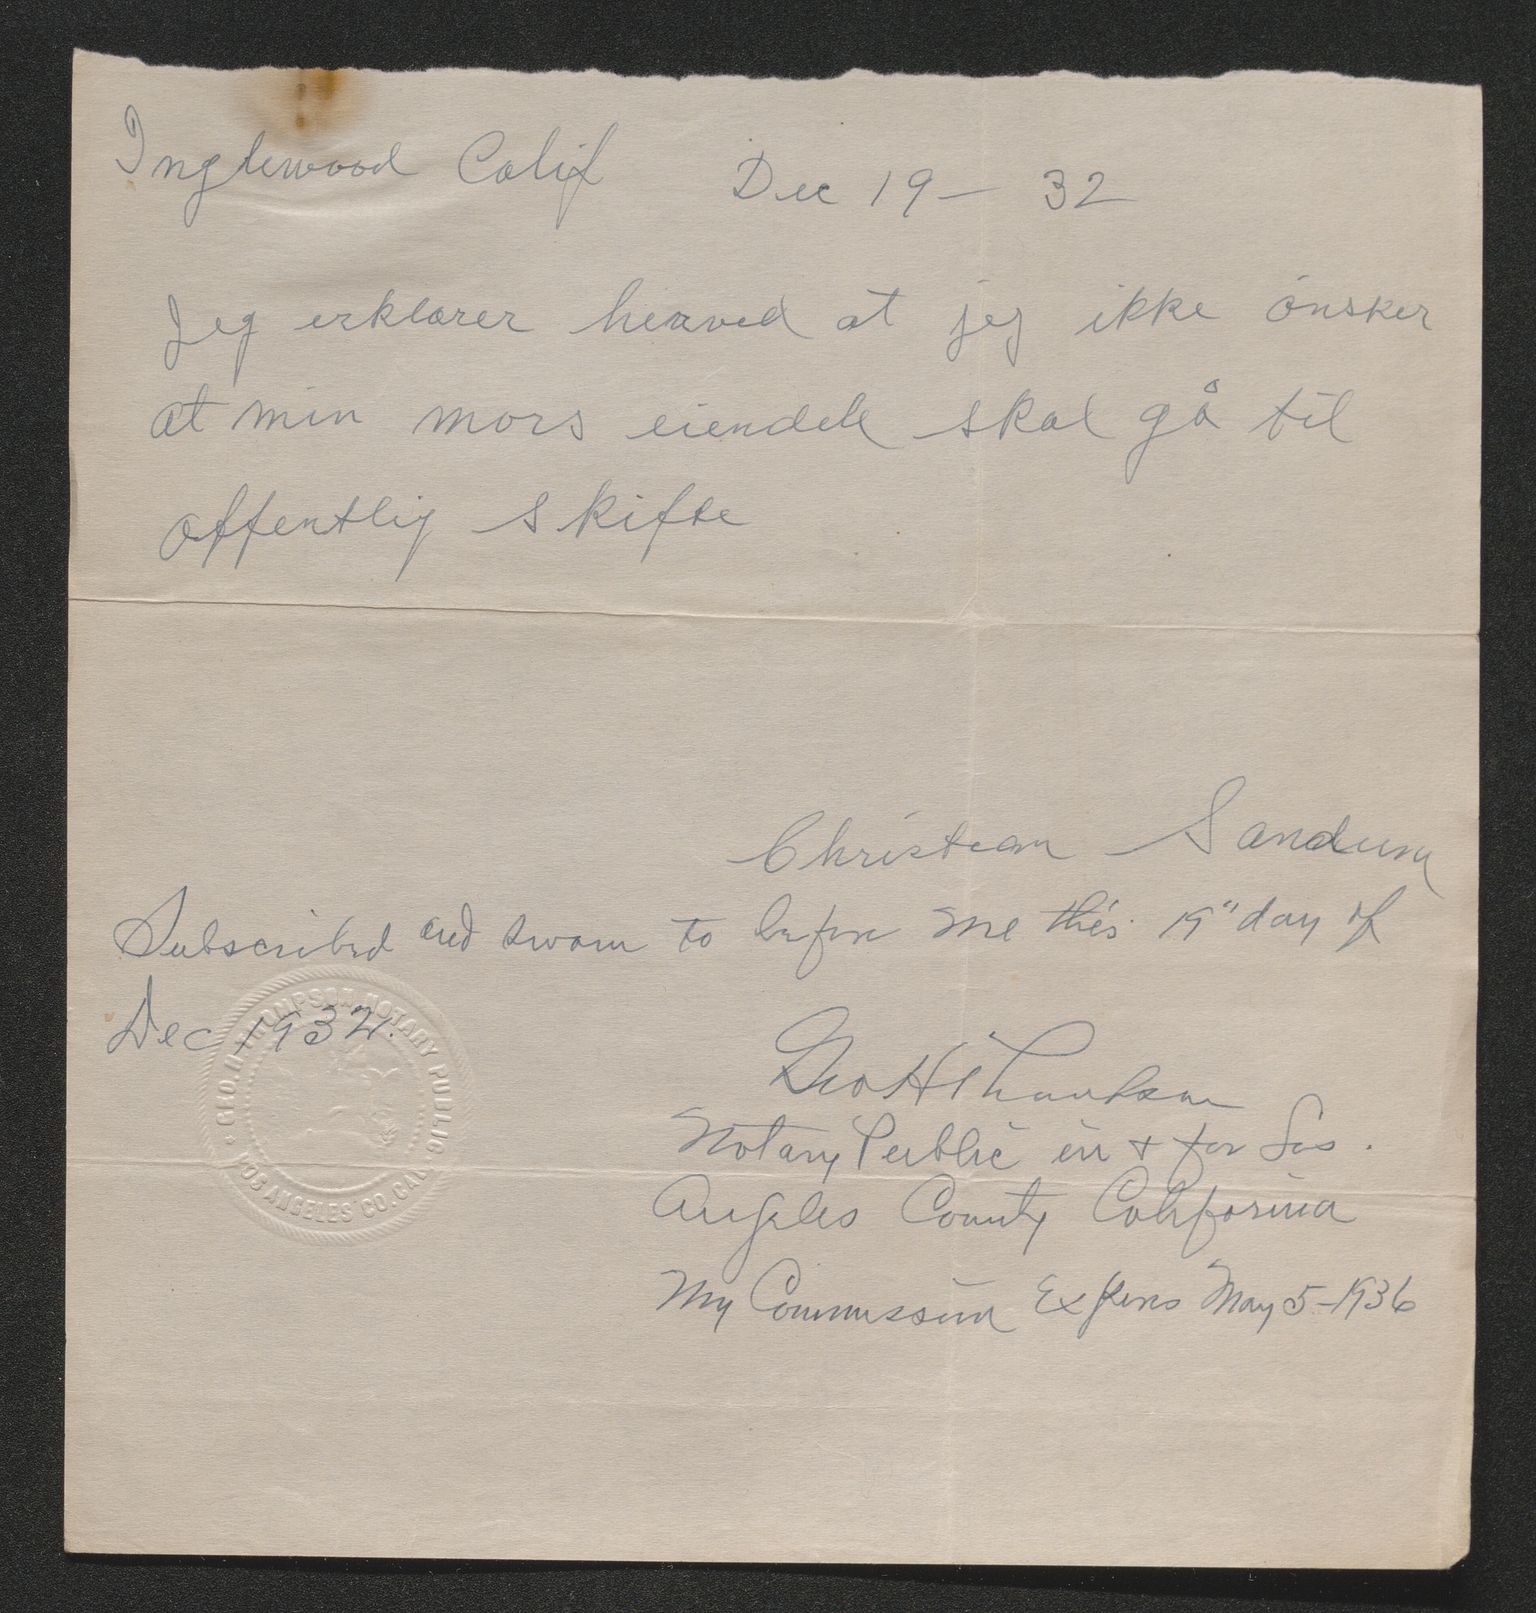 Inglewood Calif Dec 19 - 32
Jeg erklærer herved at jeg ikke ønsker
at min mors eiendele skal gå til
offentlig skifte
Christian Sandum
Subscribed and sworn to before me this 19" day of
Dec 1932.
GEO. H. THOMPSON NOTARY PUBLIC
LOS ANGELES CO. CAL.
Geo H Thompson
Notary Public in + for Los
Angeles County California
My Commission Expires May 5 - 1936